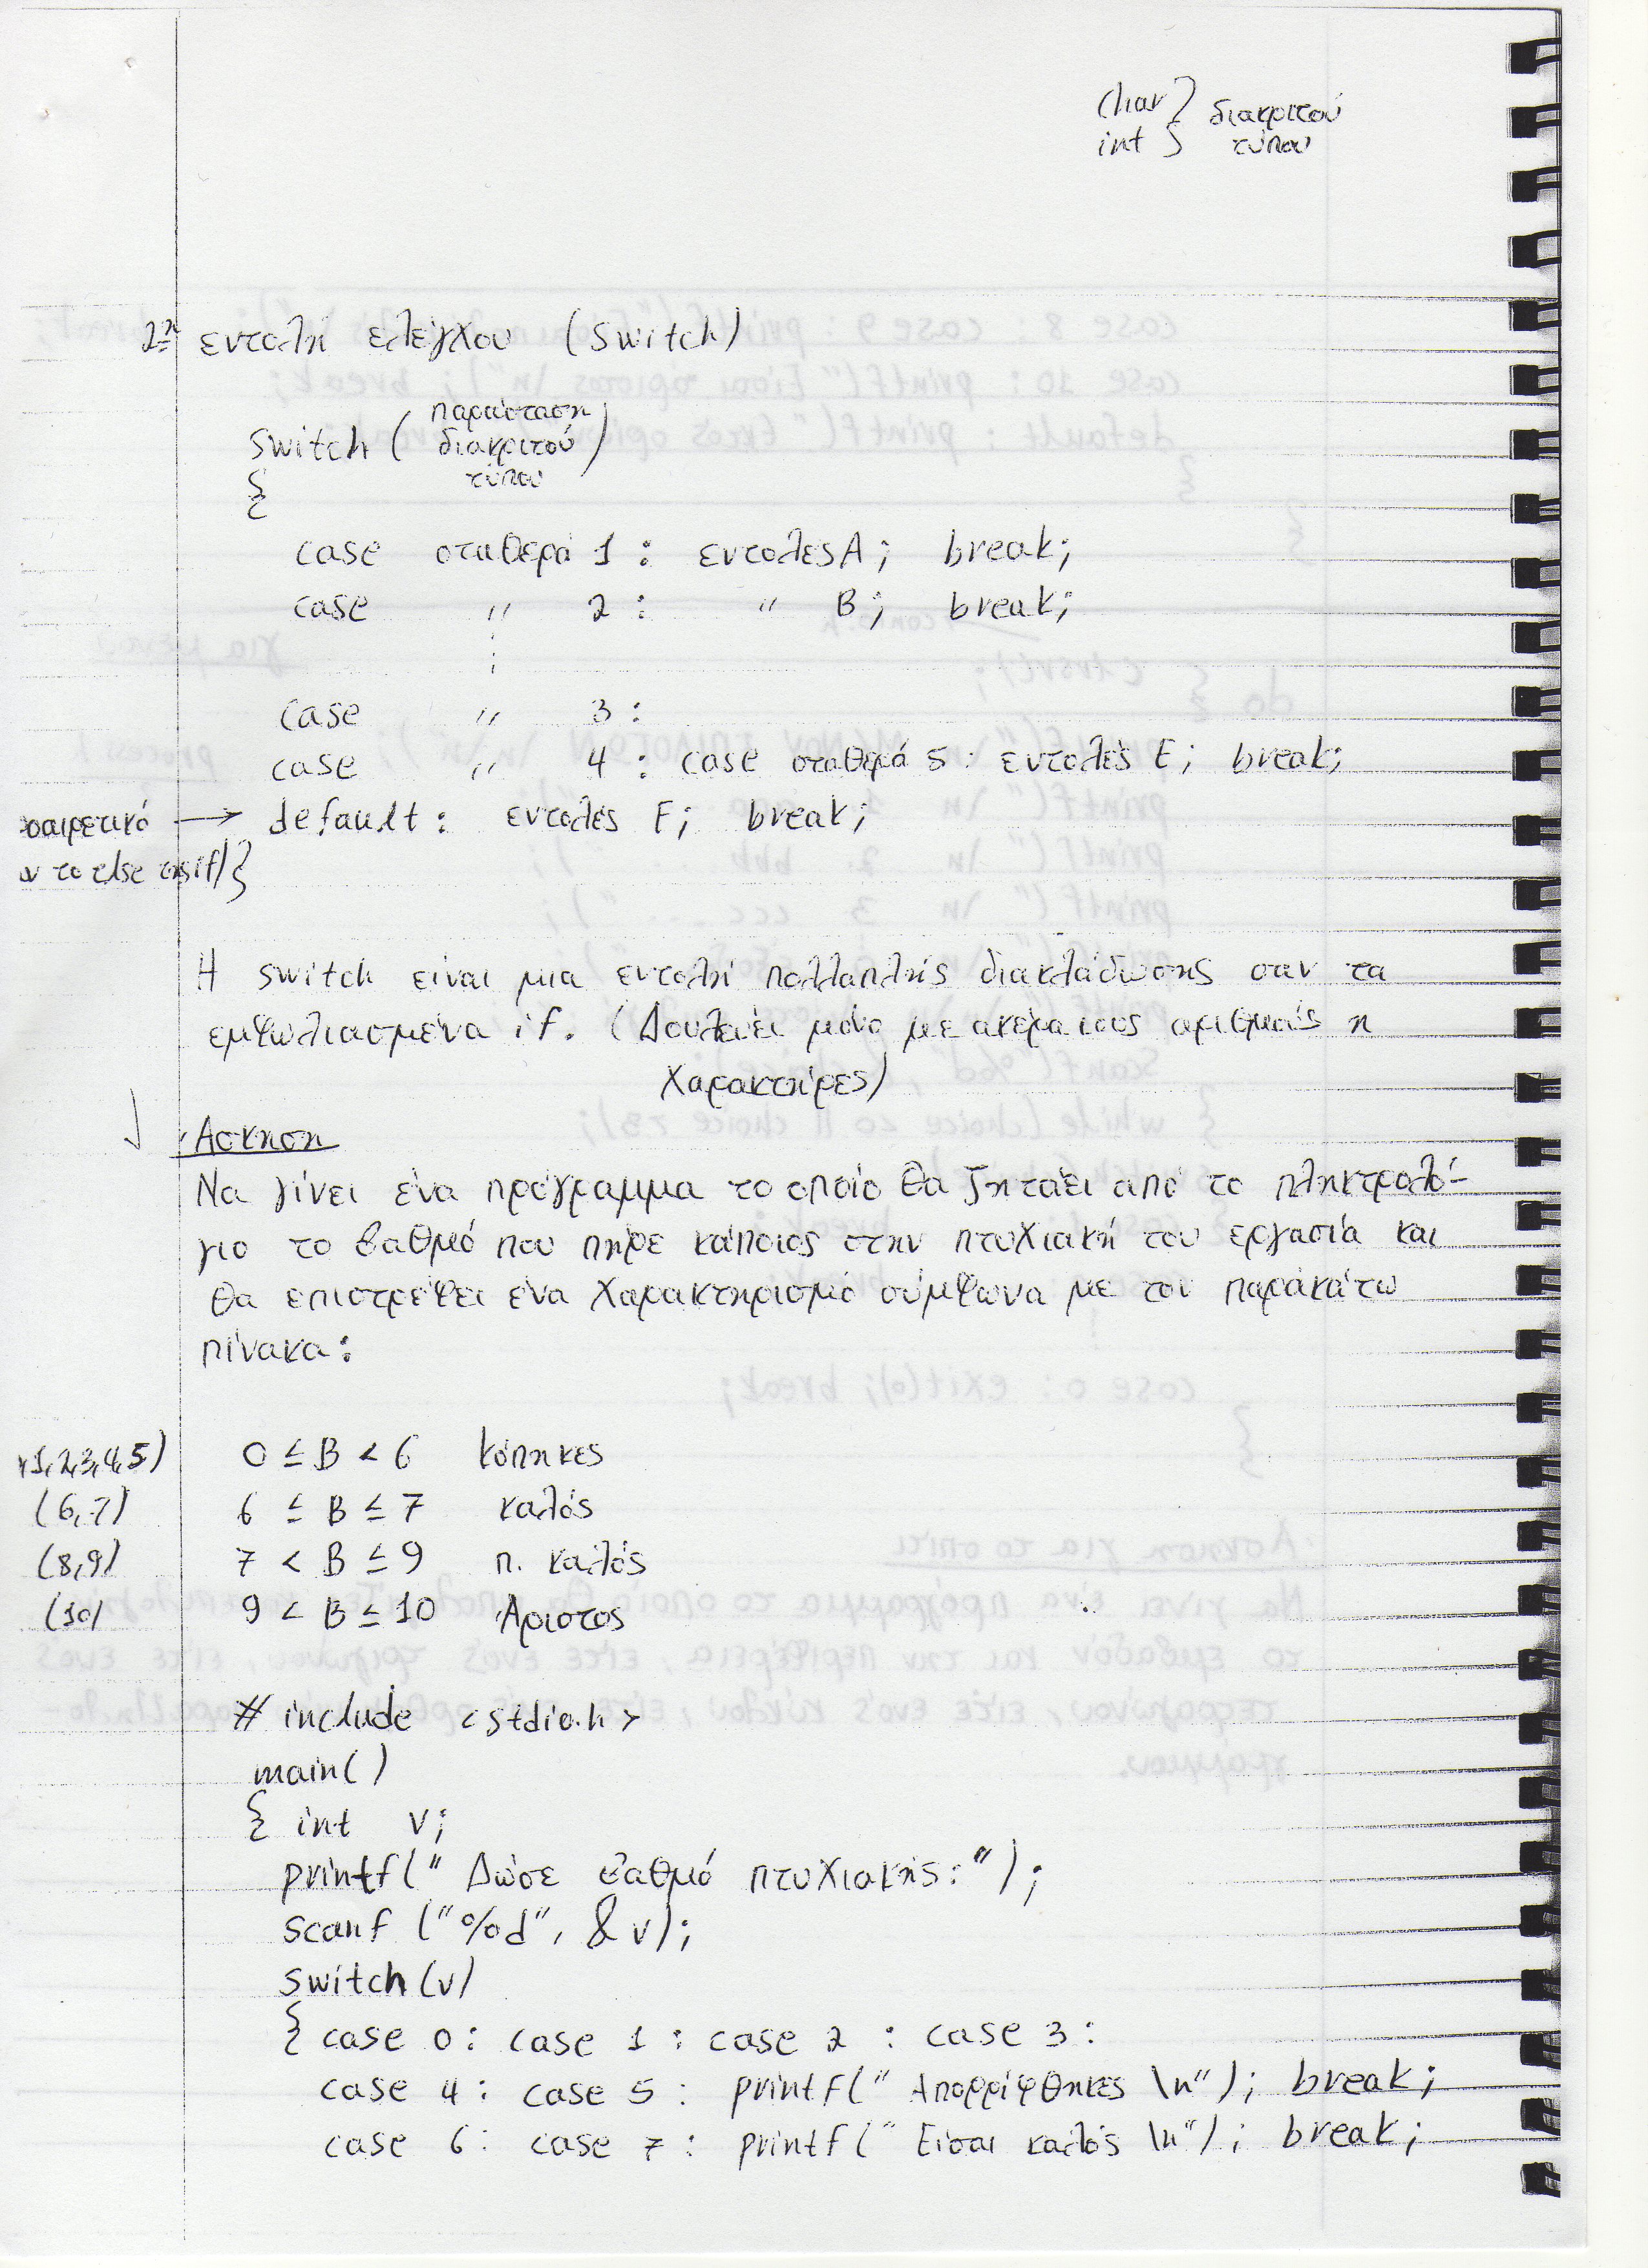 char } διακριτού
int } τύπου
2η εντολή ελέγχου (switch)
switch ( παράσταση διακριτού τύπου )
{
case σταθερά 1 : εντολές A ; break;
case " 2 : " B ; break;
⋮
case " 3 :
case " 4 : case σταθερά 5 : εντολές E ; break;
→ default : εντολές F ; break;
το else της if) }
Η switch είναι μια εντολή πολλαπλής διακλάδωσης σαν τα
εμφωλιασμένα if. (Δουλεύει μόνο με ακέραιους αριθμούς η
χαρακτήρες)
Άσκηση
Να γίνει ένα πρόγραμμα το οποίο θα ζητάει από το πληκτρολό-
γιο το βαθμό που πήρε κάποιος στην πτυχιακή του εργασία και
θα επιστρέψει ένα χαρακτηρισμό σύμφωνα με τον παρακάτω
πίνακα:
1,2,3,4,5) 0 ≤ B < 6 κόπηκες
(6,7) 6 ≤ B ≤ 7 καλός
(8,9) 7 < B ≤ 9 π. καλός
(10) 9 < B ≤ 10 Άριστος
# include <stdio.h>
main()
{ int v;
printf(" Δώσε βαθμό πτυχιακής:");
scanf ("%d", &v);
switch (v)
{ case 0 : case 1 : case 2 : case 3 :
case 4 : case 5 : printf(" Απορρίφθηκες \n"); break;
case 6 : case 7 : printf(" Είσαι καλός \n"); break;